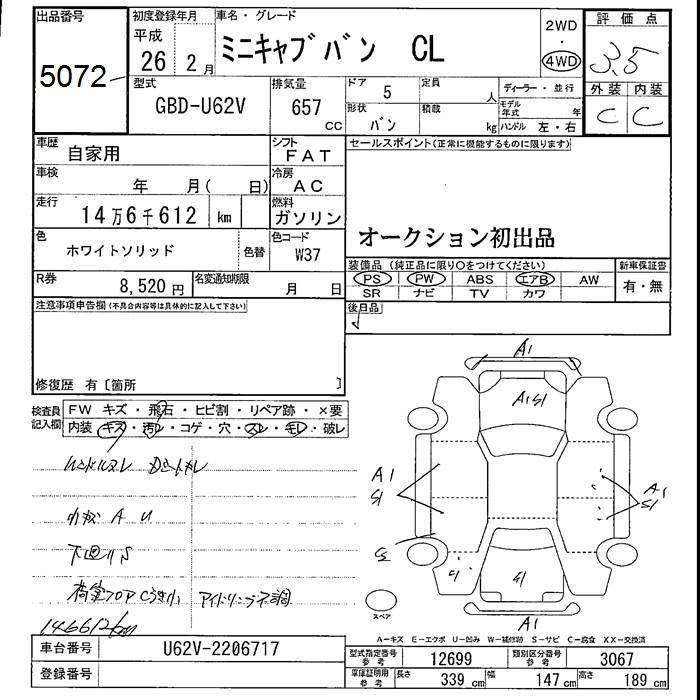 出品番号
5072
初度登録年月
平成
26 年 2 月
車名・グレード
ミニキャブバン CL
2WD
・
4WD
評価点
3.5
外装 内装
C C
型式
GBD-U62V
排気量
657 cc
ドア
5
定員
人
形状
バン
積載
kg
ディーラー・並行
モデル年式 年
ハンドル 左・右
車歴
自家用
シフト
FAT
セールスポイント(正常に機能するものに限ります)
車検
年 月( 日)
冷房
AC
走行
14万6千612 km
燃料
ガソリン
オークション初出品
色
ホワイトソリッド
色替
色コード
W37
装備品 (純正品に限り○をつけてください)
新車保証書
PS PW ABS エアB AW
SR ナビ TV カワ
有・無
R券
8,520円
名変通知期限
月 日
後日品
注意事項申告欄(不具合内容等は具体的に記入して下さい)
修復歴 有〔箇所 〕
検査員記入欄
FW キズ・飛石・ヒビ割・リペア跡・×要
内装 キズ・汚レ・コゲ・穴・スレ・モレ・破レ
ハンドルスレ
小キズ A U
下回り S
荷室フロア
アイドリング不調
146612km
A1
A1 S1
A1
S1
A1
S1
S1
A1
スペア
A-キズ E-エクボ U-凹み W-補修跡 S-サビ C-腐食 XX-交換済
車台番号
U62V-2206717
登録番号
型式指定番号 参考
12699
類別区分番号 参考
3067
車庫証明用 参考
長さ 339 cm
幅 147 cm
高さ 189 cm